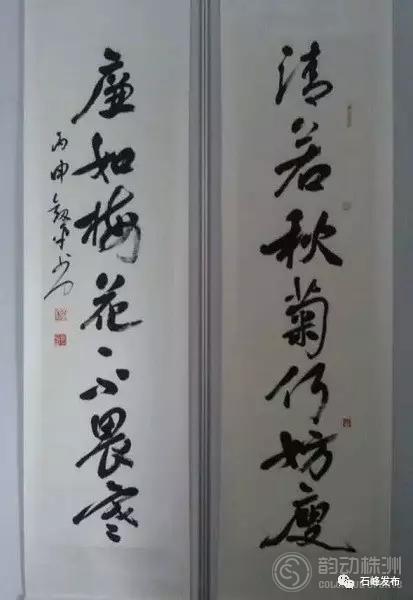 清若秋菊何妨瘦
廉如梅花不畏寒
丙申
韵动株洲
石峰发布